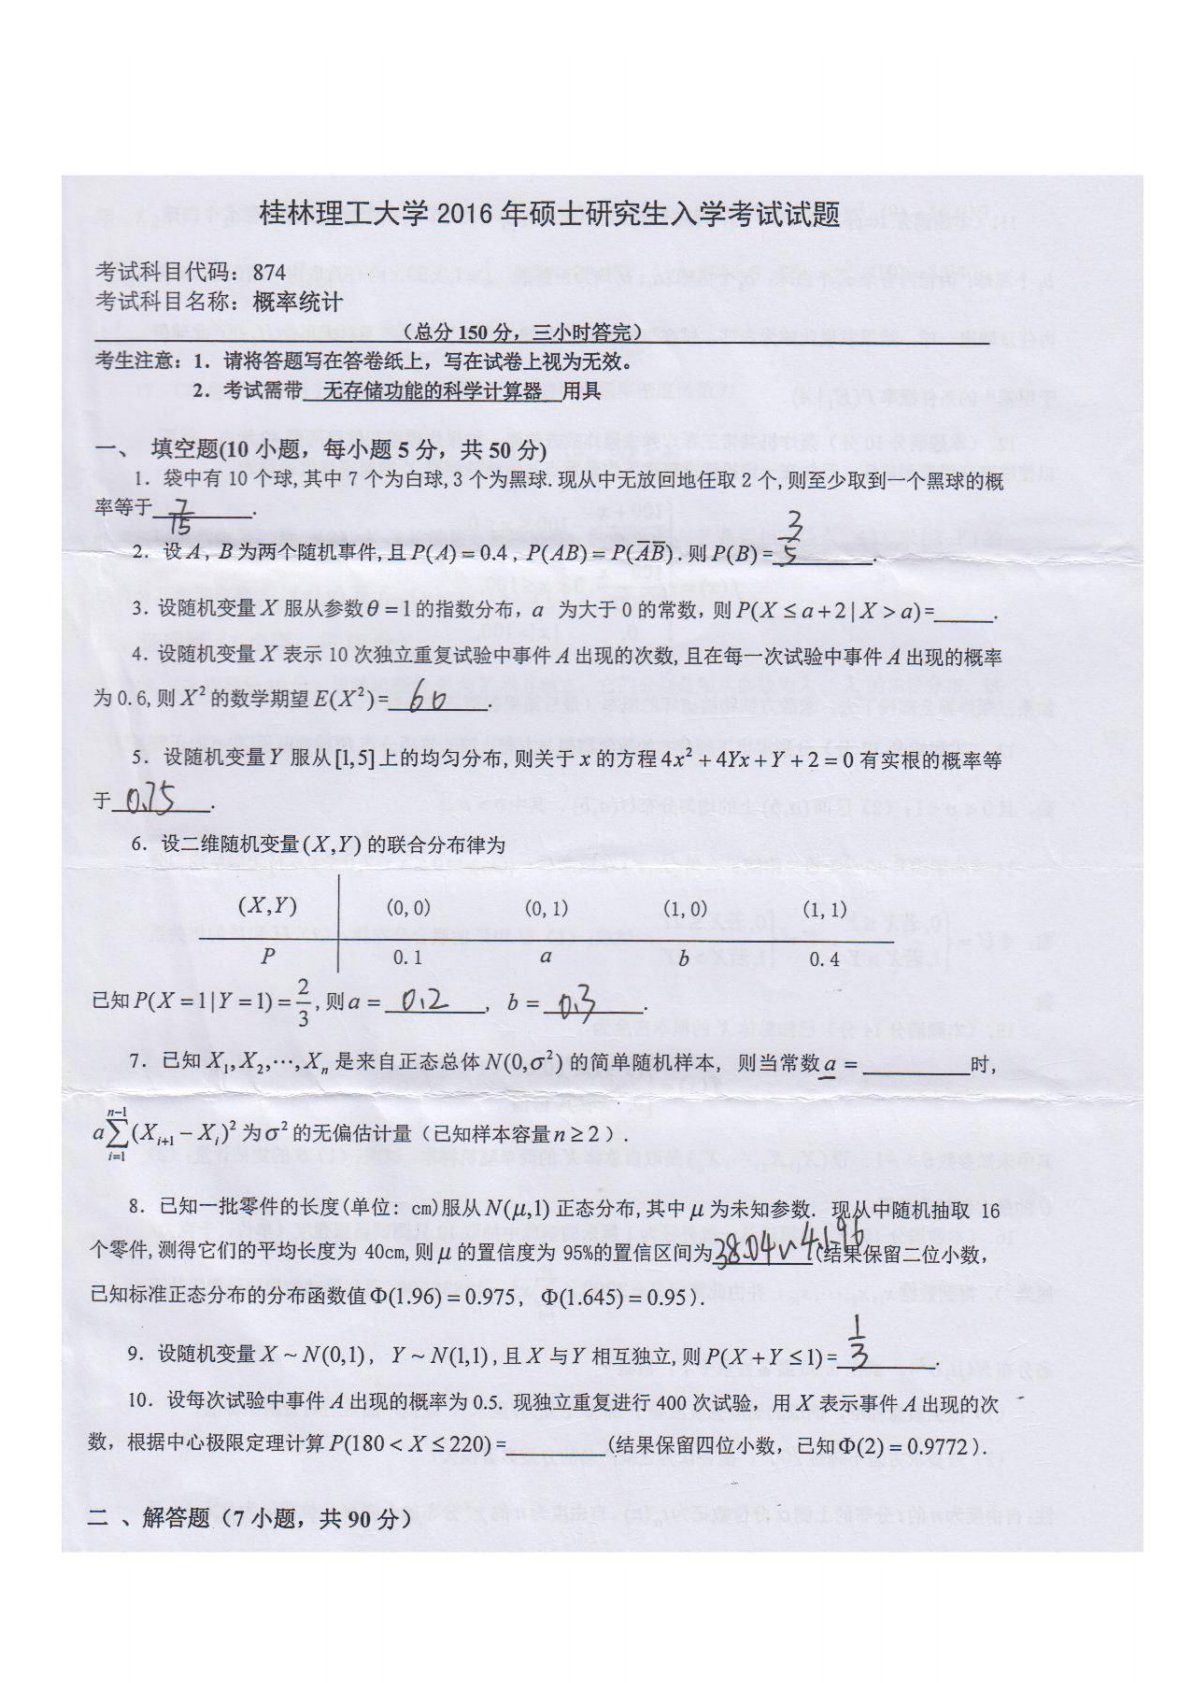 桂林理工大学 2016 年硕士研究生入学考试试题
考试科目代码：874
考试科目名称：概率统计
（总分 150 分，三小时答完）
考生注意：1．请将答题写在答卷纸上，写在试卷上视为无效。
2．考试需带 无存储功能的科学计算器 用具
一、 填空题(10 小题，每小题 5 分，共 50 分)
1．袋中有 10 个球,其中 7 个为白球,3 个为黑球.现从中无放回地任取 2 个,则至少取到一个黑球的概
率等于 7/15 .
2．设 A, B 为两个随机事件,且 P(A)=0.4, P(AB)=P(A̅B̅).则 P(B)= 3/5 .
3．设随机变量 X 服从参数 θ=1 的指数分布，a 为大于 0 的常数，则 P(X≤a+2|X>a)=_____.
4．设随机变量 X 表示 10 次独立重复试验中事件 A 出现的次数,且在每一次试验中事件 A 出现的概率
为 0.6,则 X² 的数学期望 E(X²)= 60 .
5．设随机变量 Y 服从 [1,5] 上的均匀分布,则关于 x 的方程 4x²+4Yx+Y+2=0 有实根的概率等
于 0.75 .
6．设二维随机变量 (X,Y) 的联合分布律为
(X,Y) (0,0) (0,1) (1,0) (1,1)
P 0.1 a b 0.4
已知 P(X=1|Y=1)=2/3,则 a= 0.2 ，b= 0.3 .
7．已知 X₁,X₂,⋯,Xₙ 是来自正态总体 N(0,σ²) 的简单随机样本，则当常数 a=_________时，
a∑_{i=1}^{n-1}(X_{i+1}−X_i)² 为 σ² 的无偏估计量（已知样本容量 n≥2）.
8．已知一批零件的长度(单位：cm)服从 N(μ,1) 正态分布,其中 μ 为未知参数．现从中随机抽取 16
个零件,测得它们的平均长度为 40cm,则 μ 的置信度为 95%的置信区间为 38.04~41.96 (结果保留二位小数，
已知标准正态分布的分布函数值 Φ(1.96)=0.975，Φ(1.645)=0.95）.
9．设随机变量 X~N(0,1)，Y~N(1,1),且 X 与 Y 相互独立,则 P(X+Y≤1)= 1/3 .
10．设每次试验中事件 A 出现的概率为 0.5.现独立重复进行 400 次试验，用 X 表示事件 A 出现的次
数，根据中心极限定理计算 P(180<X≤220)=_________(结果保留四位小数，已知 Φ(2)=0.9772）.
二 、解答题（7 小题，共 90 分）